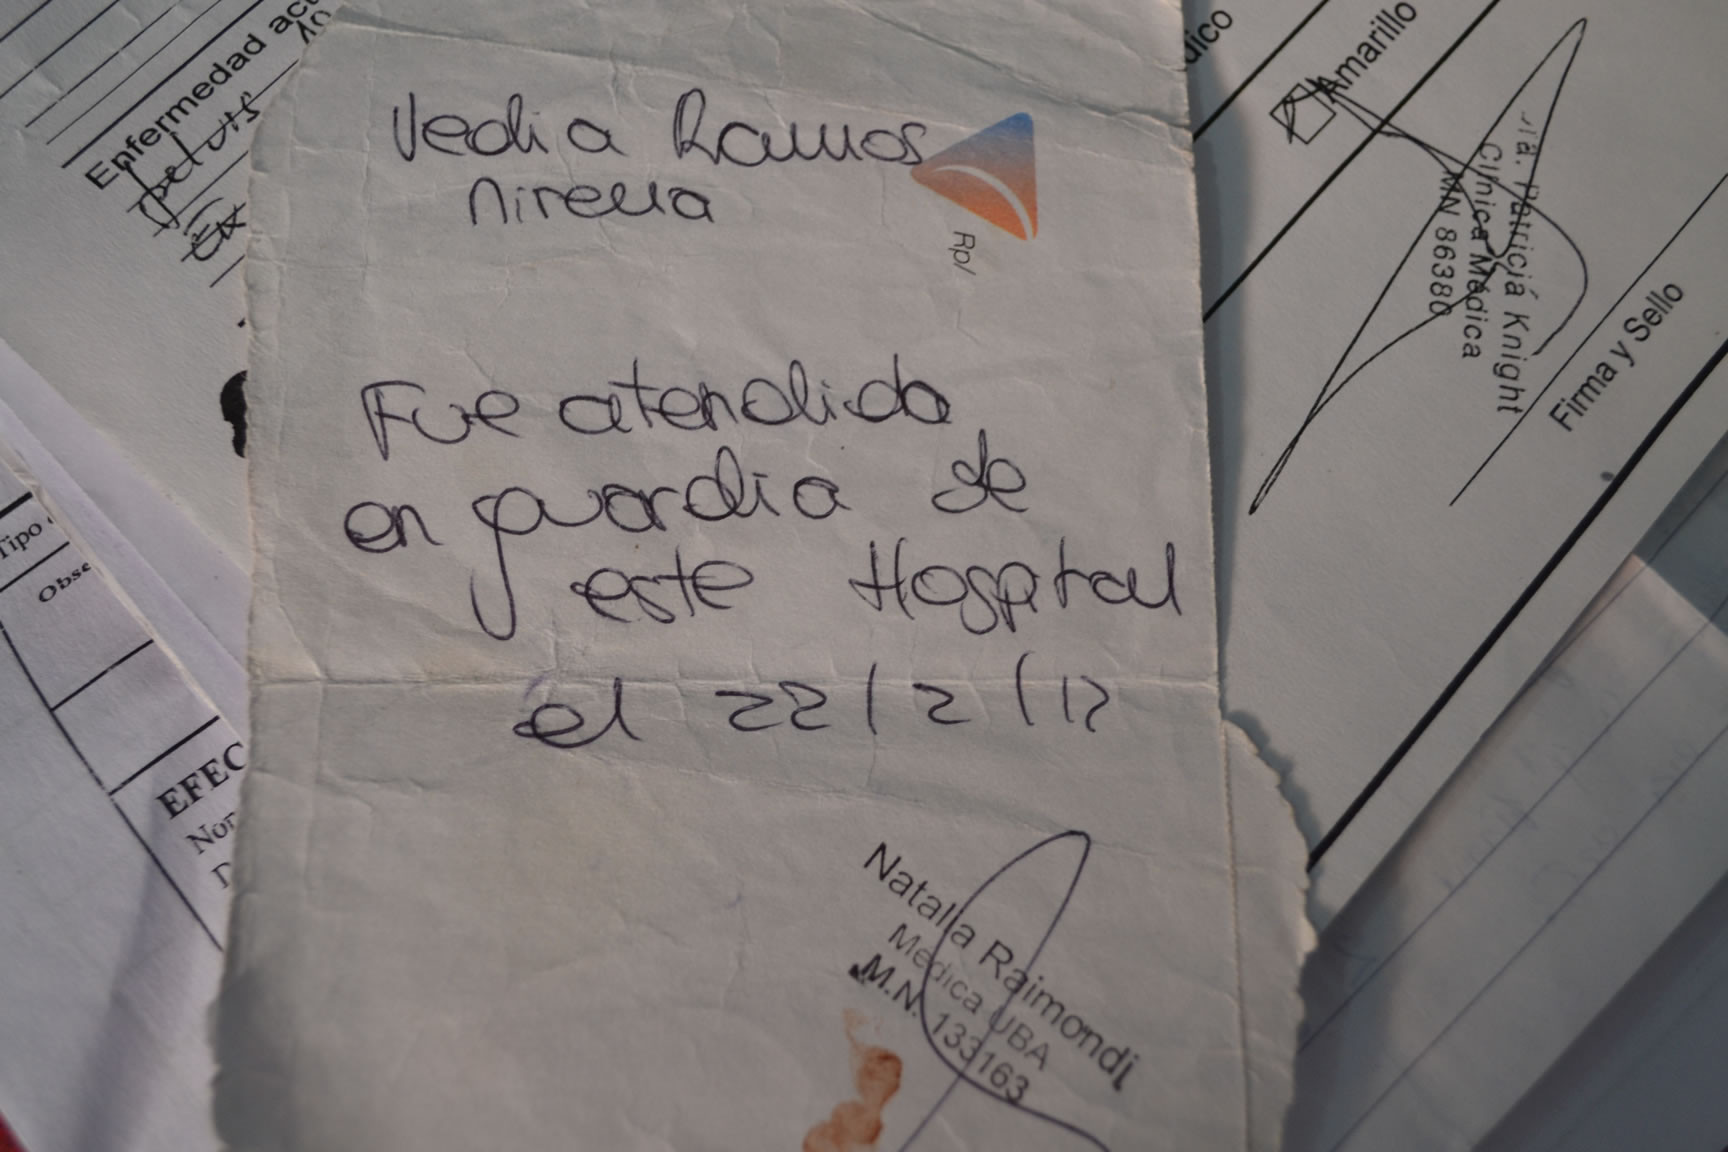 Vedia Ramos
Mirella
Rp/
Fue atendida
en guardia de
este Hospital
el 22/2/12
Natalia Raimondi
Médica UBA
M.N. 133163
Enfermedad act
Tipo
Obse
EFEC
Nor
D
dico
Amarillo
Patricia Knight
Clínica Médica
MN 86380
Firma y Sello